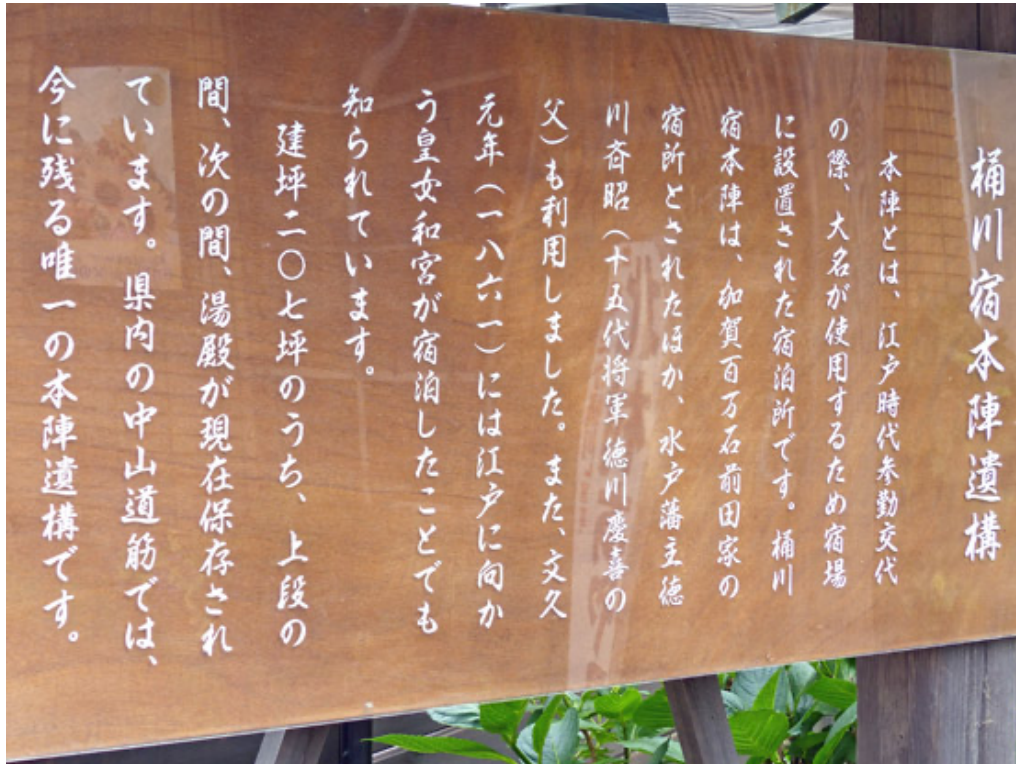 桶川宿本陣遺構
本陣とは、江戸時代参勤交代
の際、大名が使用するため宿場
に設置された宿泊所です。桶川
宿本陣は、加賀百万石前田家の
宿所とされたほか、水戸藩主徳
川斉昭（十五代将軍徳川慶喜の
父）も利用しました。また、文久
元年（一八六一）には江戸に向か
う皇女和宮が宿泊したことでも
知られています。
建坪二〇七坪のうち、上段の
間、次の間、湯殿が現在保存され
ています。県内の中山道筋では、
今に残る唯一の本陣遺構です。